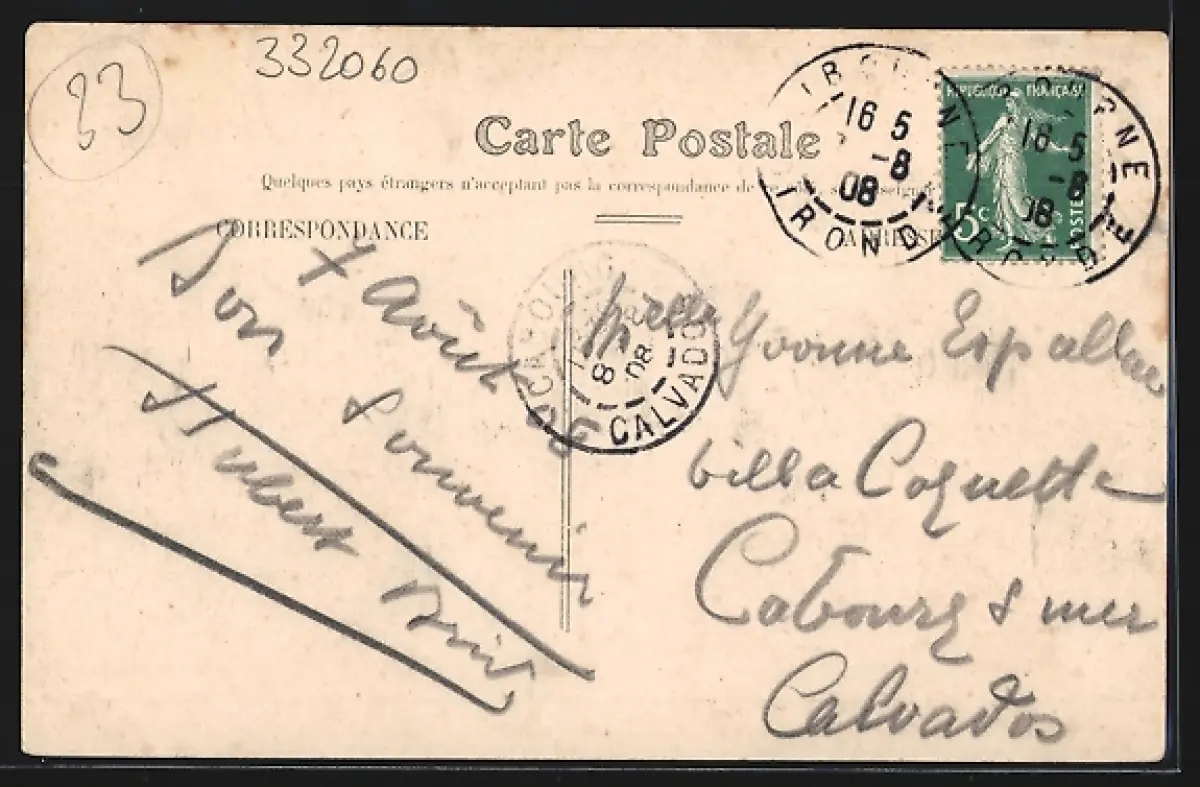 332060
33
Carte Postale
Quelques pays étrangers n'acceptant pas la correspondance de
CORRESPONDANCE
ADRESSE
REPUBLIQUE FRANÇAISE
5c
POSTES
16 5
-8
08
GIRONDE
16 5
-8
08
GIRONDE
8
08
CALVADOS
7 Août 08
Bon
Souvenir
Hubert
Melle Yvonne
villa Coquette
Cabourg s mer
Calvados